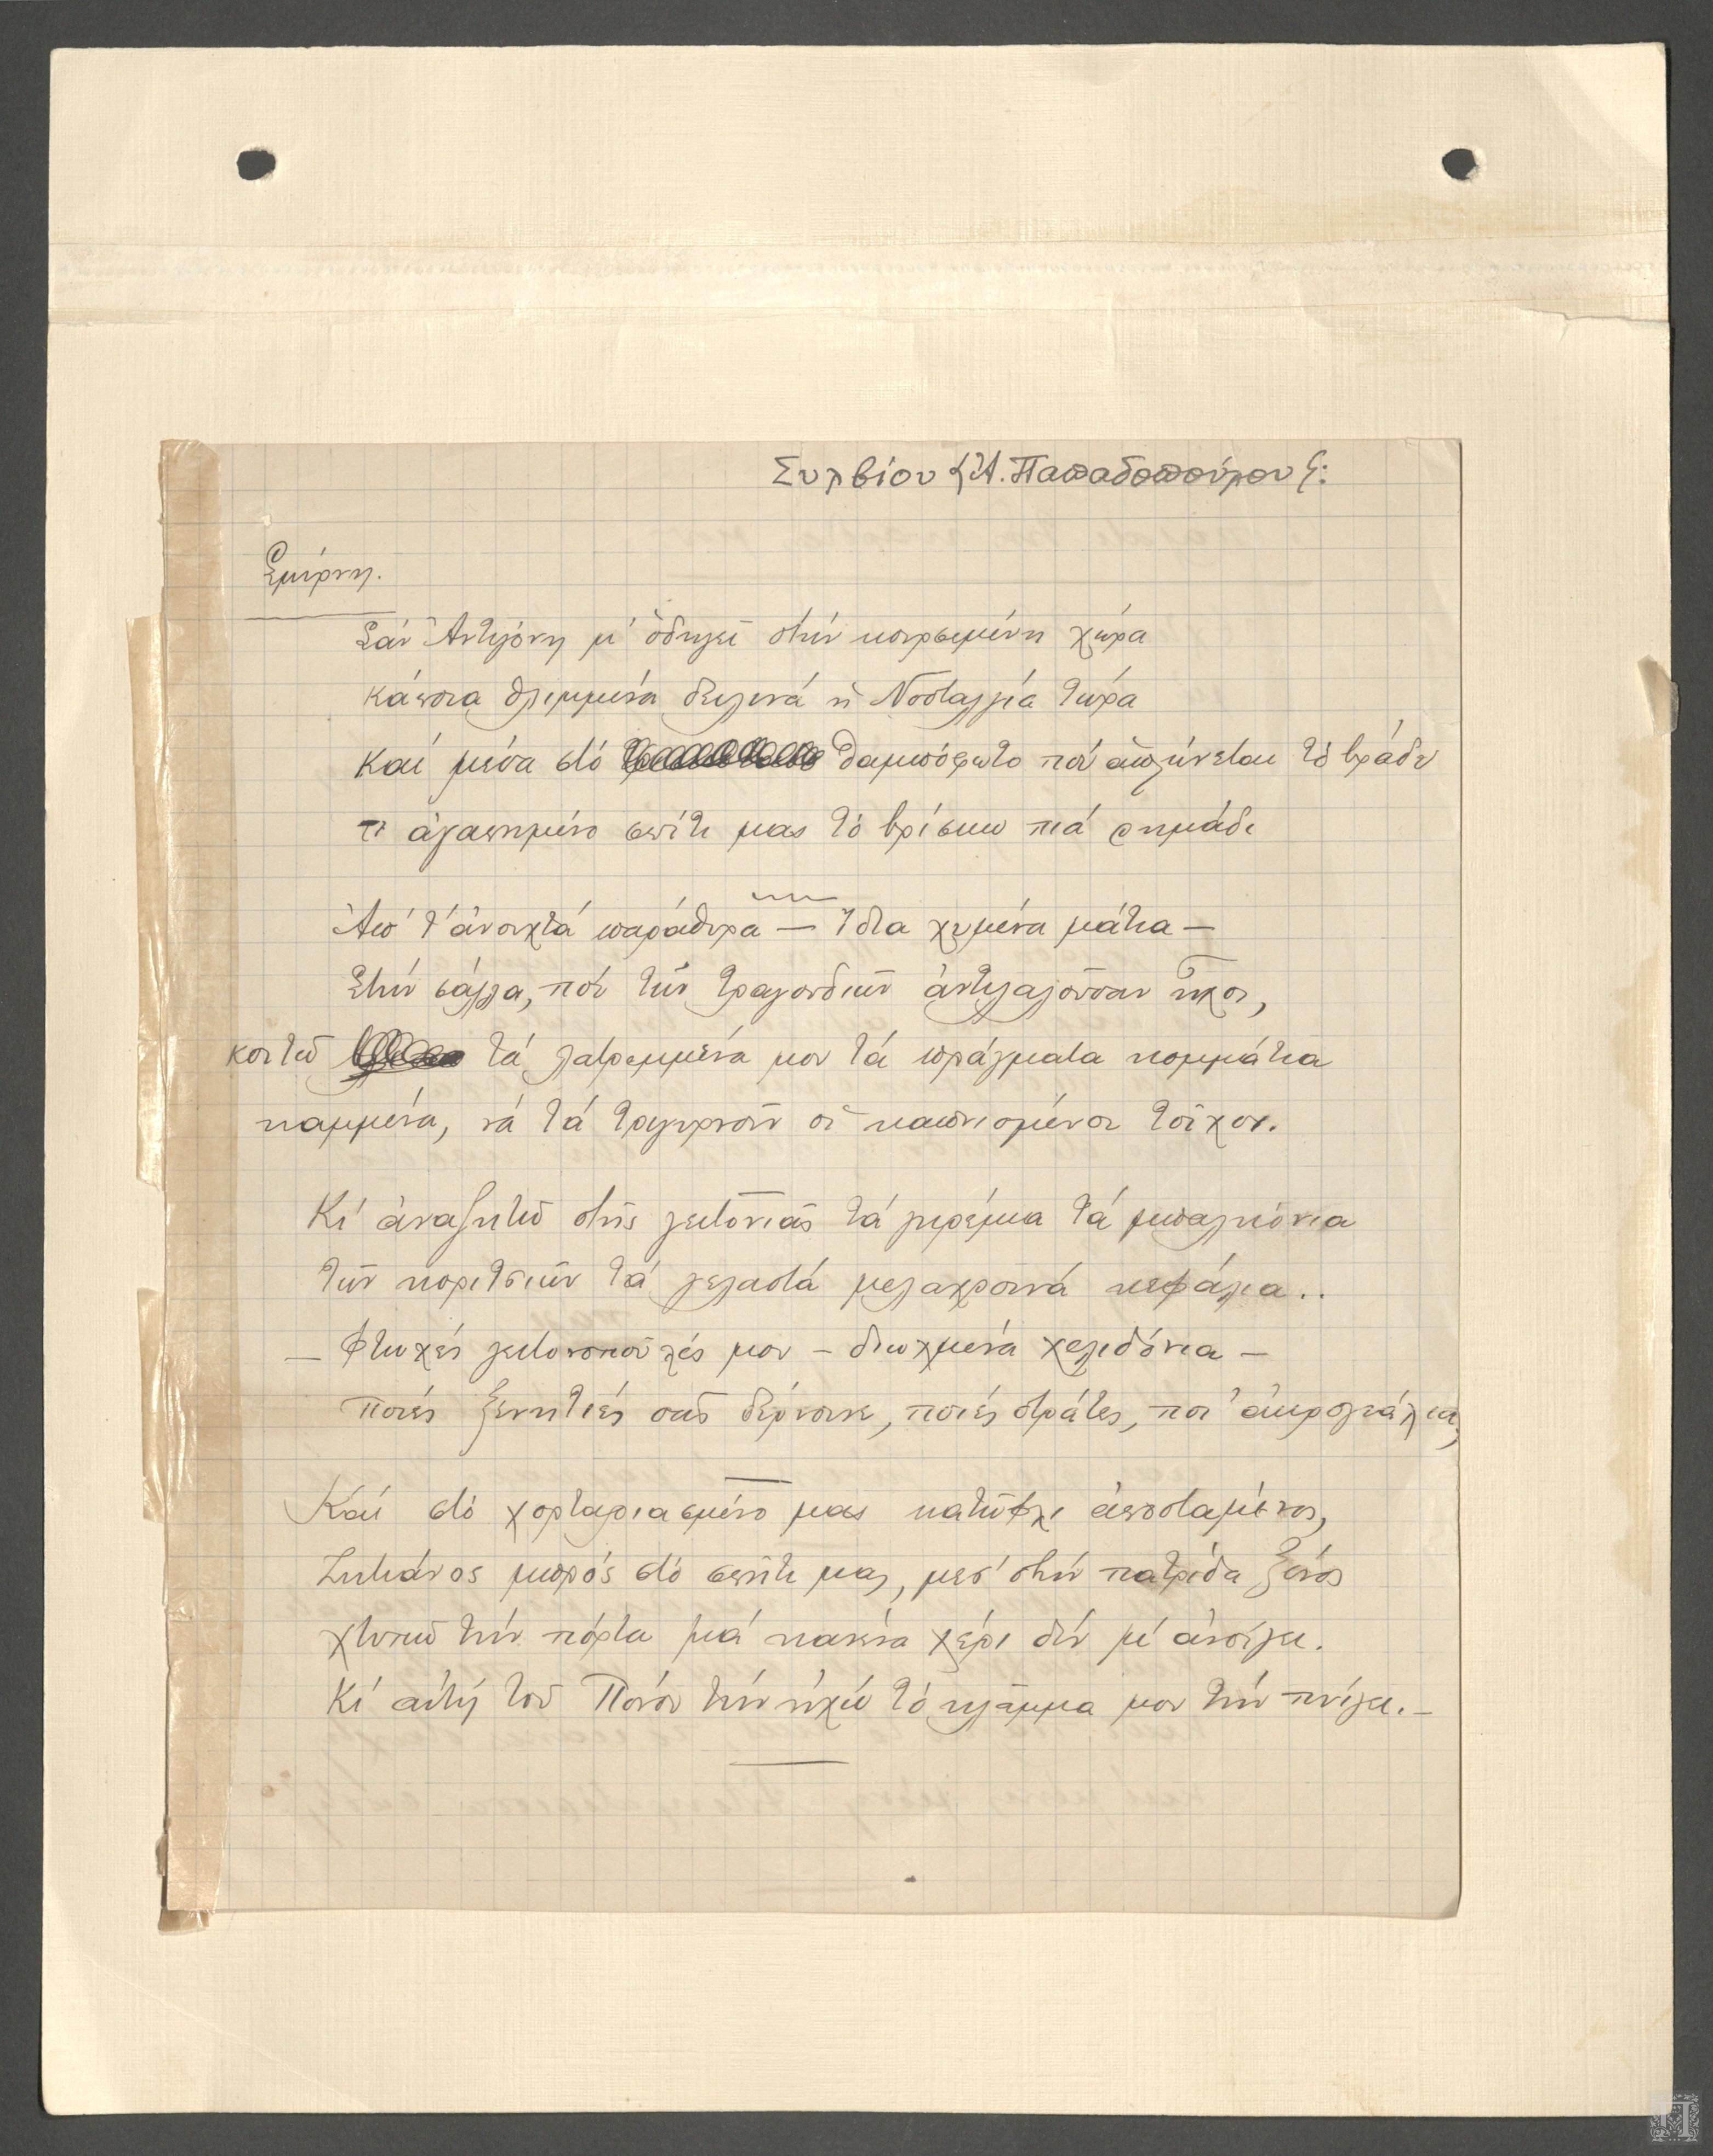 Συλβίου {Α. Παπαδοπούλου}:
Σμύρνη.
Σάν Ἀντιγόνη μ' ὁδηγεῖ στήν κουρσεμένη χώρα
κάποια θλιμμένα δειλινά ἡ Νοσταλγία τώρα
καί μέσα στό θαμπόφωτο πού ἁπλώνεται τό βράδυ
τ' ἀγαπημένο σπίτι μας τό βρίσκω πιά ρημάδι
Ἀπ' τ' ἀνοιχτά παράθυρα – ἴδια χυμένα μάτια –
Στήν σάλλα, πού τῶν τραγουδιῶν ἀντιλαλοῦσαν ἦχοι,
κοιτῶ τά λατρεμμένα μου τά πράγματα κομμάτια
καμμένα, νά τά τριγυρνοῦν οἱ καπνισμένοι τοῖχοι.
Κι' ἀναζητῶ στῆς γειτονιᾶς τά ἔρμα τά μπαλκόνια
τῶν κοριτσιῶν τά γελαστά μελαχροινά κεφάλια..
– Φτωχές γειτονοποῦλές μου – διωχμένα χελιδόνια –
ποιές ξενητιές σᾶς δέρνουνε, ποιές στράτες, ποι' ἀκρογιάλια;
Καί στό χορταριασμένο μας κατώφλι ἀποσταμένος,
Ζητιάνος μπρός στό σπίτι μας, μεσ' στήν πατρίδα ξένος
χτυπῶ τήν πόρτα μά κανένα χέρι δέν μ' ἀνοίγει.
Κι' αὐτή τοῦ Πόνου τήν ἠχώ τό κλάμμα μου τήν πνίγει. –